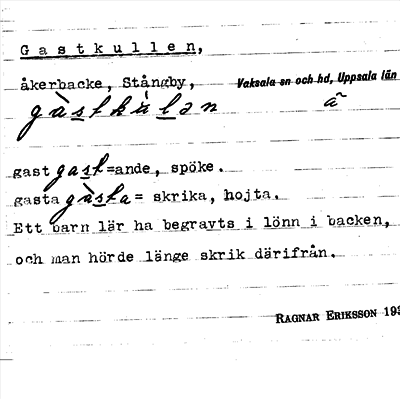 Gastkullen,
åkerbacke, Stångby, Vaksala sn och hd, Uppsala län
gast =ande, spöke.
gasta = skrika, hojta.
Ett barn lär ha begravts i lönn i backen,
och man hörde länge skrik därifrån.
RAGNAR ERIKSSON 193